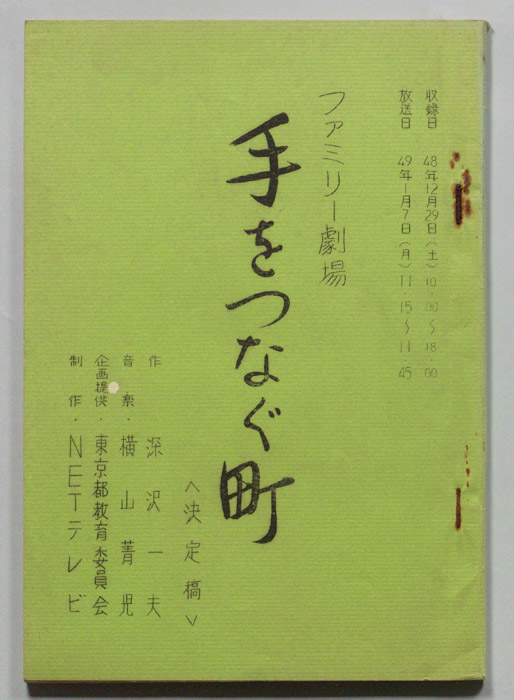 収録日 48年12月29日(土)10.00〜18.00
放送日 49年1月7日(月)11.15〜11.45
ファミリー劇場
手をつなぐ町
<決定稿>
作 深沢一夫
音楽・横山菁児
企画提供・東京都教育委員会
制作・NETテレビ